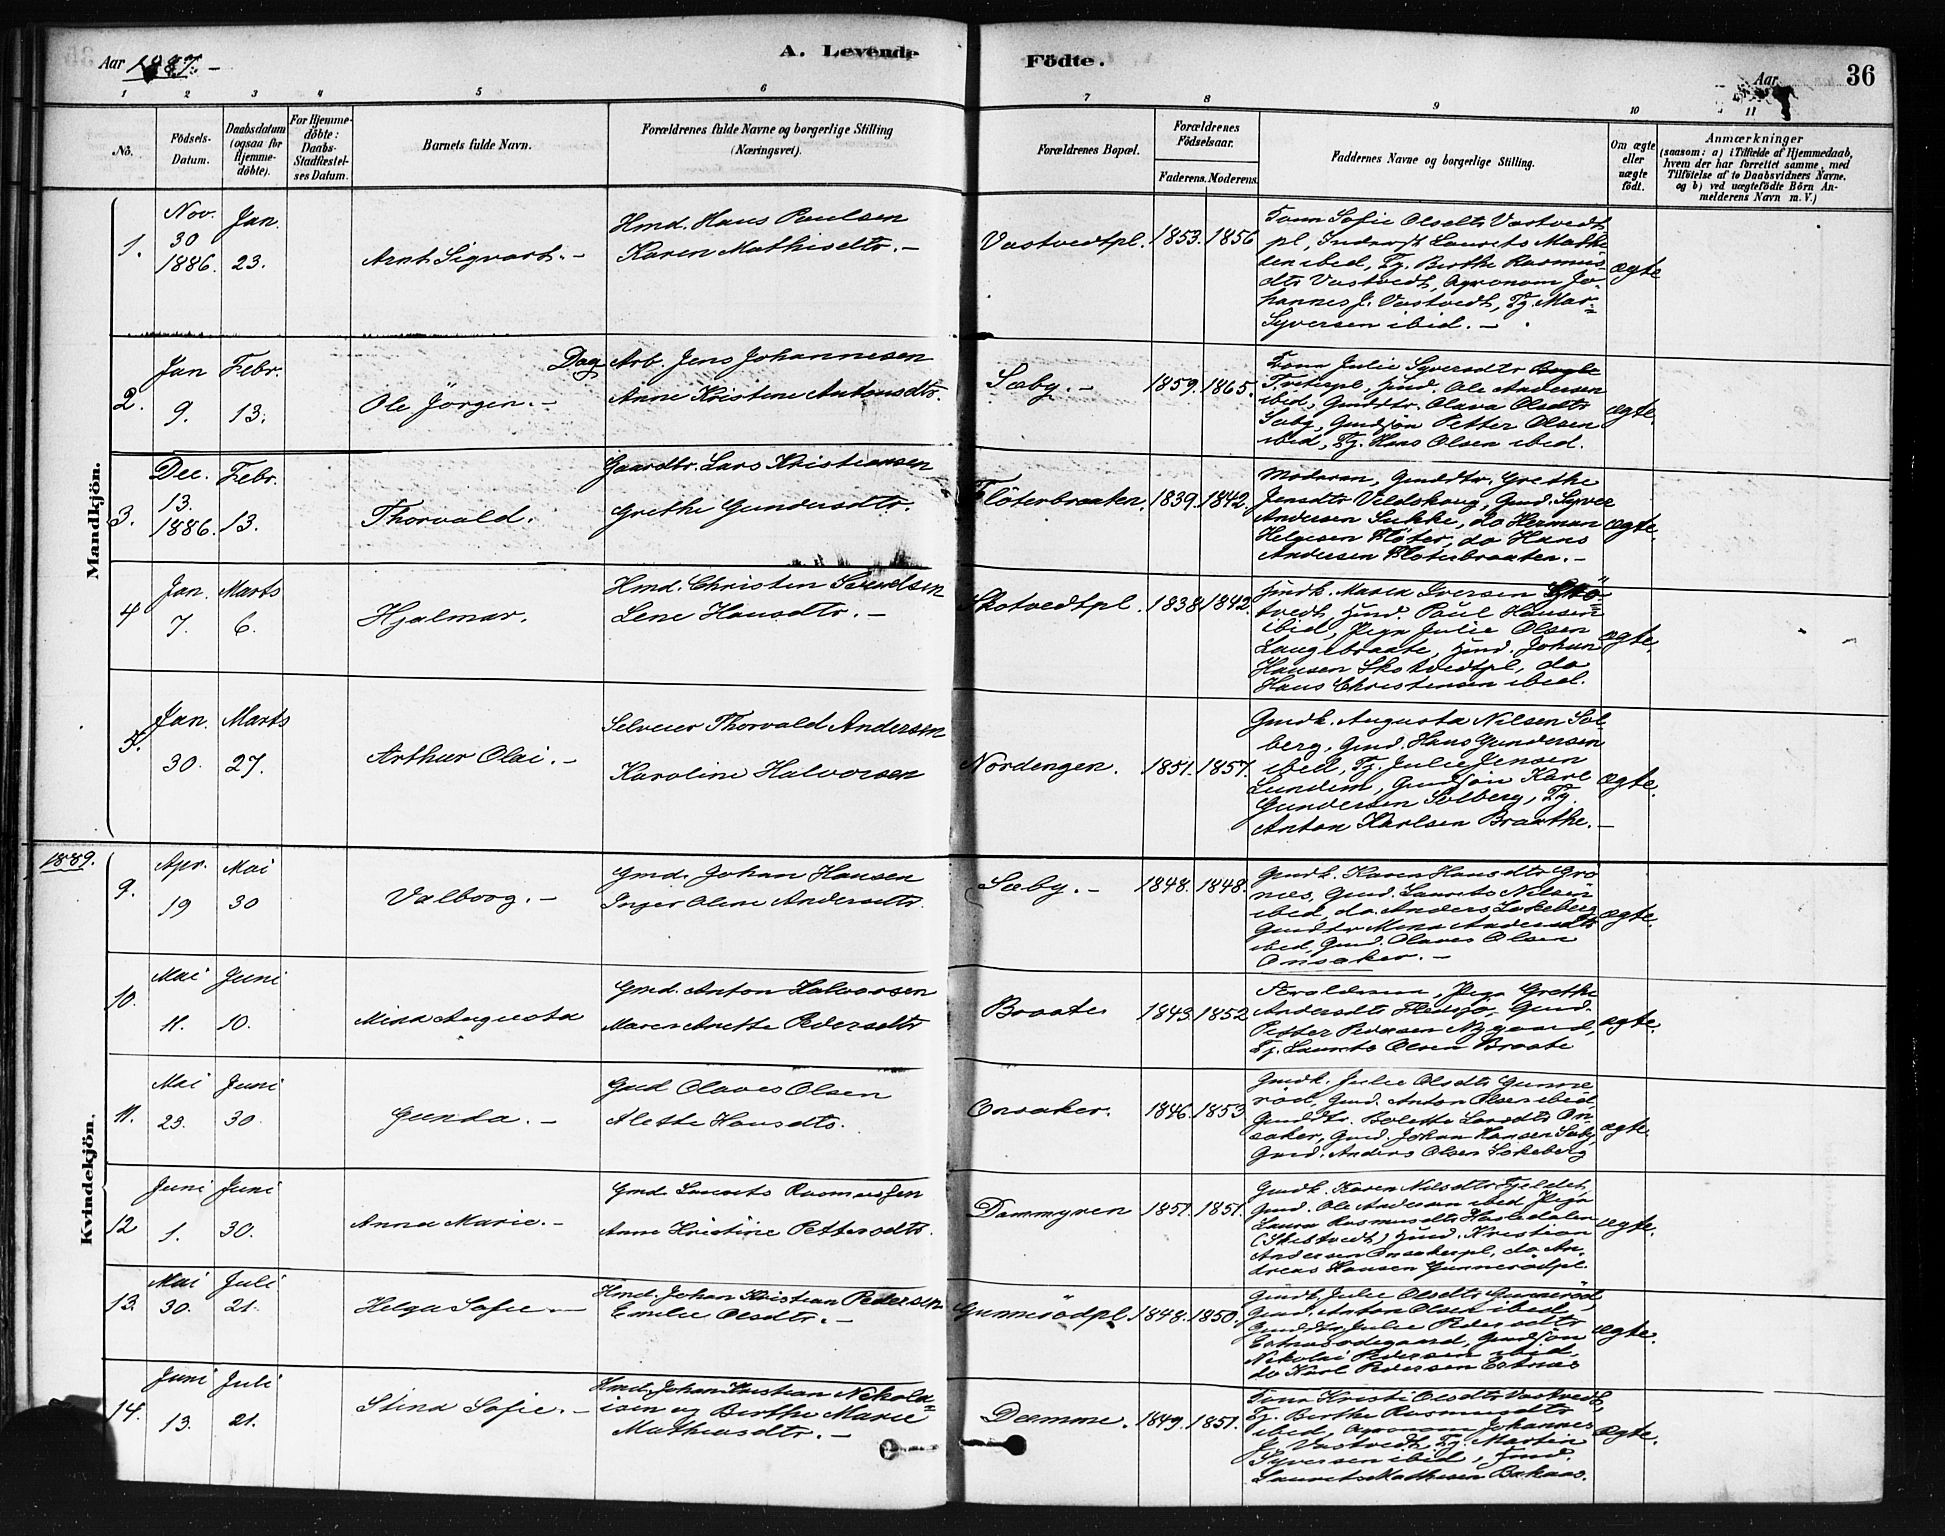 Aar 1887.
A. Levende Födte.
Aar
36
1 2 3 4 5 6 7 8 9 10 11
No.
Födsels-Datum.
Daabsdatum (ogsaa for Hjemme-döbte).
For Hjemme-döbte: Daabs-Stadfæstel-ses Datum.
Barnets fulde Navn.
Forældrenes fulde Navne og borgerlige Stilling (Næringsvei).
Forældrenes Bopæl.
Forældrenes Födselsaar.
Faderens. Moderens.
Faddernes Navne og borgerlige Stilling.
Om ægte eller uægte födt.
Anmærkninger
(saasom: a) i Tilfælde af Hjemmedaab, hvem der har forrettet samme, med Tilföielse af to Daabsvidners Navne. og b) ved uægtefödte Börn An-melderens Navn m. V.)
Mandkjön.
1.
Nov. 30 1886.
Jan. 23.
Arnt Sigvart.
Hmd. Hans Paulsen
Karen Mathisdtr.
Vastvedtpl.
1853. 1856
Kona Sofie Olsdtr Vastvedt
pl, Laurits Mathi
sen ibid, Tj. Berthe Rasmus
dtr Vastvedt, Agronom Jo-
hannes J. Vastvedt, Tj. Mar
Syversen ibid.
ægte
2.
Jan 9.
Febr. 13.
Ole Jörgen.
Dag Arb. Jens Johannesen
Anne Kristine Antonsdtr.
Sæby.
1859. 1865.
Kona Julie Syversdtr
Tveterpl, Hmd. Ole Andersen
ibid, Gmddtr. Olava Olsdtr
Sæby, Gmdsön Petter Olsen
ibid, Tj. Hans Olsen ibid.
ægte.
3.
Dec. 13. 1886.
Febr. 13.
Thorvald.
Gaardbr. Lars Kristiansen
Grethe Gundersdtr.
Flöterbraaten.
1839. 1842.
Moderen, Gmddtr. Grethe
Jensdtr Vildskoug, Gmd. Syver
Andersen Sukke, do Herman
Helgesen Flöter, do Hans
Andersen Flöterbraaten.
ægte.
4
Jan. 7.
Marts 6.
Hjalmar.
Hmd. Christen
Lene Hansdtr.
Skotvedtpl.
1838 1842.
Gmdk. Maren Iversen Skö
tvedt, Hmd. Paul Hansen
ibid, Pige Julie Olsen
Langebraate, Hmd. Johan
Hansen Skotvedtpl, do
Hans Christensen ibid.
ægte.
5.
Jan. 30.
Marts 27.
Arthur Olai.
Selveier Thorvald Andersen
Karoline Halvorsen
Nordengen.
1851. 1857.
Gmdk. Augusta Nilsen Sol
berg, Gmd. Hans Gundersen
ibid, Tj. Julie Jensen
Lundem, Gmdsön Karl
Gundersen Solberg, Tj.
Anton Karlsen Braathe.
ægte.
1889.
Kvindekjön.
9.
Apr. 19
Mai 30
Valborg.
Gmd. Johan Hansen
Inger Oline Andersdtr.
Sæby.
1848. 1848.
Gmdk. Karen Hansdtr Gro
næs, Gmd. Laurits Nilsen
ibid, do Anders Lokeberg
Gmddtr Mina Andersdtr
ibid, Gmd. Olaves Olsen
Onsaker.
ægte.
10.
Mai 11.
Juni 10.
Mina Augusta
Gmd. Anton Halvorsen
Maren Anette Pedersdtr
Braate
1843. 1852
Forældrene, Pige Grethe
Andersdtr, Gmd.
Petter Pedersen Nygaard,
Tj. Laurits Olsen Braate
ægte.
11.
Mai 23.
Juni 30.
Gunda.
Gmd Olaves Olsen
Alette Hansdtr.
Onsaker.
1846. 1853
Gmdk. Julie Olsdtr Gunne
röd, Gmd. Anton Olsen ibid,
Gmddtr. Bolette Larsdtr On
saker, Gmd. Johan Hansen Sæby,
Gmd. Anders Olsen Lokeberg
ægte.
12
Juni 1.
Juni 30.
Anna Marie.
Gmd. Laurits Rasmussen
Anne Kristine Pettersdtr.
Dammyren
1851. 1851.
Gmdk. Karen Nilsdtr Fjeldet,
Gmd. Ole Andersen ibid, Pige
Laura Rasmusdtr Hasledalen
(Skistvedt) Hmd. Kristian
Andersen Onsakerpl, do An-
dreas Hansen Gunnerödpl.
ægte.
13.
Mai 30.
Juli 21.
Helga Sofie.
Hmd. Johan Kristian Pedersen
Emilie Olsdtr.
Gunnerödpl.
1848. 1850.
Gmdk Julie Olsdtr Gunneröd,
Gmd. Anton Olsen ibid,
Gmddtr. Julie Pedersdtr
Gmdsön
Nikolai Pedersen ibid,
do Karl Pedersen
ægte.
14.
Juni 13.
Juli 21.
Stina Sofie.
Hmd. Johan Kristian Nikolai
isen og Berthe Marie
Mathiasdtr.
1849. 1851.
Kona Kristi Olsdtr Vastvedt,
Tj. Berthe Rasmusdtr
ibid, Agronom Johannes
J. Vastvedt, Tj. Martin
Syversen ibid, Hmd.
Laurits Mathisen Bakaas.
ægte.